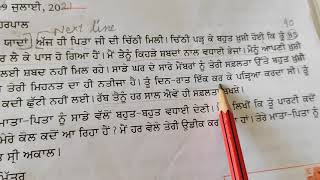 9 ਜੁਲਾਈ, 202
ਹਰਪਾਲ
Next line
90
ਯਾਦਾਂ ਅੱਜ ਹੀ ਪਿਤਾ ਜੀ ਦੀ ਚਿੱਠੀ ਮਿਲੀ। ਚਿੱਠੀ ਪੜ੍ਹ ਕੇ ਬਹੁਤ ਖ਼ੁਸ਼ੀ ਹੋਈ ਕਿ ਤੂੰ
ਲੈ ਕੇ ਪਾਸ ਹੋ ਗਿਆ ਹੈਂ। ਮੈਂ ਤੈਨੂੰ ਕਿਹੜੇ ਸ਼ਬਦਾਂ ਨਾਲ ਵਧਾਈ ਭੇਜਾਂ। ਮੈਨੂੰ ਆਪਣੀ ਖ਼ੁਸ਼ੀ
ਲਈ ਸ਼ਬਦ ਨਹੀਂ ਮਿਲ ਰਹੇ। ਸਾਡੇ ਘਰ ਦੇ ਸਾਰੇ ਮੈਂਬਰਾਂ ਨੂੰ ਤੇਰੀ ਸਫਲਤਾ ਉੱਤੇ ਬਹੁਤ ਖ਼ੁਸ਼ੀ
ਤੇਰੀ ਮਿਹਨਤ ਦਾ ਹੀ ਨਤੀਜਾ ਹੈ। ਤੂੰ ਦਿਨ-ਰਾਤ ਇੱਕ ਕਰ ਕੇ ਪੜ੍ਹਿਆ ਕਰਦਾ ਸੀ। ਤੂੰ
ਕਦੀ ਛੁੱਟੀ ਨਹੀਂ ਲਈ। ਰੱਬ ਤੈਨੂੰ ਹਰ ਸਾਲ ਐਵੇਂ ਹੀ ਸਫਲਤਾ ਬਖ਼ਸ਼ੇ।
ਮਾਤਾ-ਪਿਤਾ ਨੂੰ ਸਾਡੇ ਵੱਲੋਂ ਬਹੁਤ-ਬਹੁਤ ਵਧਾਈ ਦੇਣੀ। ਲਿਖੀਂ ਕਿ ਤੂੰ ਪਾਰਟੀ ਕਦੋਂ
ਮੇਰੇ ਕੋਲ ਕਦੋਂ ਆ ਰਿਹਾ ਹੈਂ? ਮੈਂ ਹਰ ਵੇਲੇ ਤੇਰੀ ਉਡੀਕ ਕਰ ਹਾਂ। ਤੇਰੇ ਮਾਤਾ-ਪਿਤਾ ਨੂੰ
ਸ੍ਰੀ ਅਕਾਲ।
ਮਿੱਤਰ